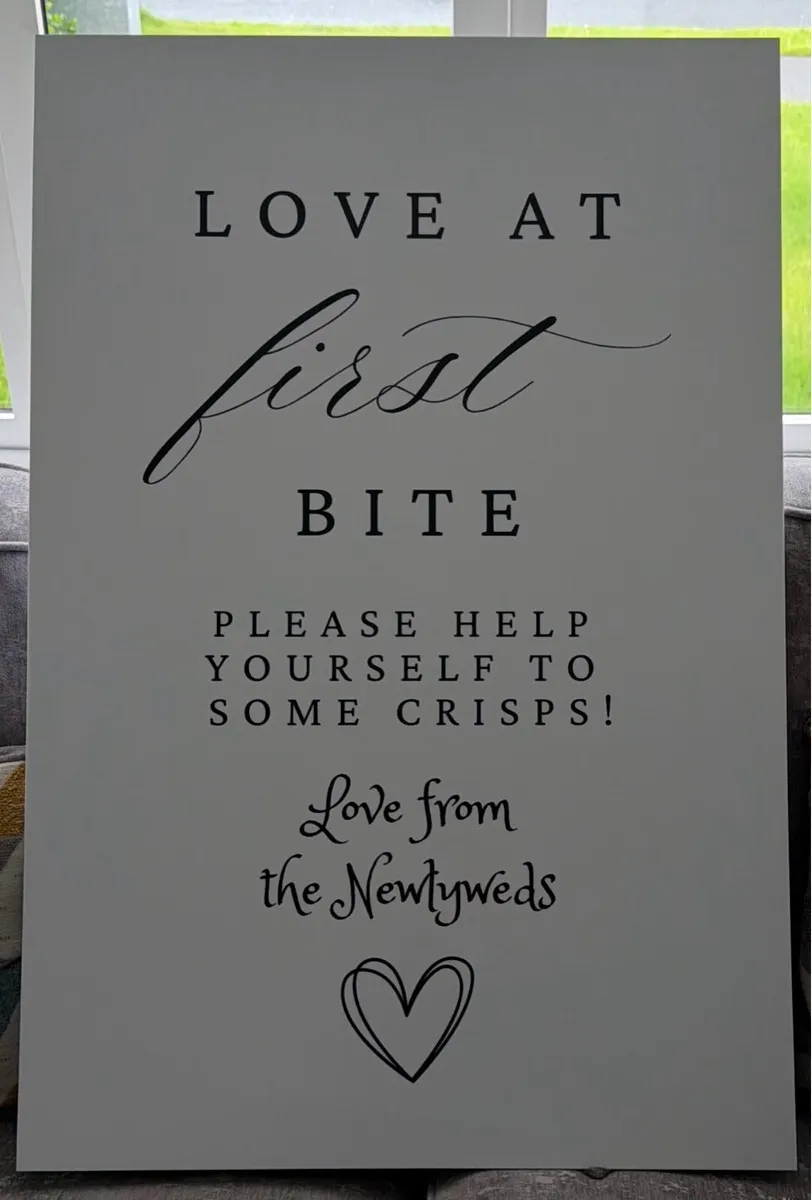 LOVE AT
first
BITE
PLEASE HELP
YOURSELF TO
SOME CRISPS!
Love from
the Newlyweds